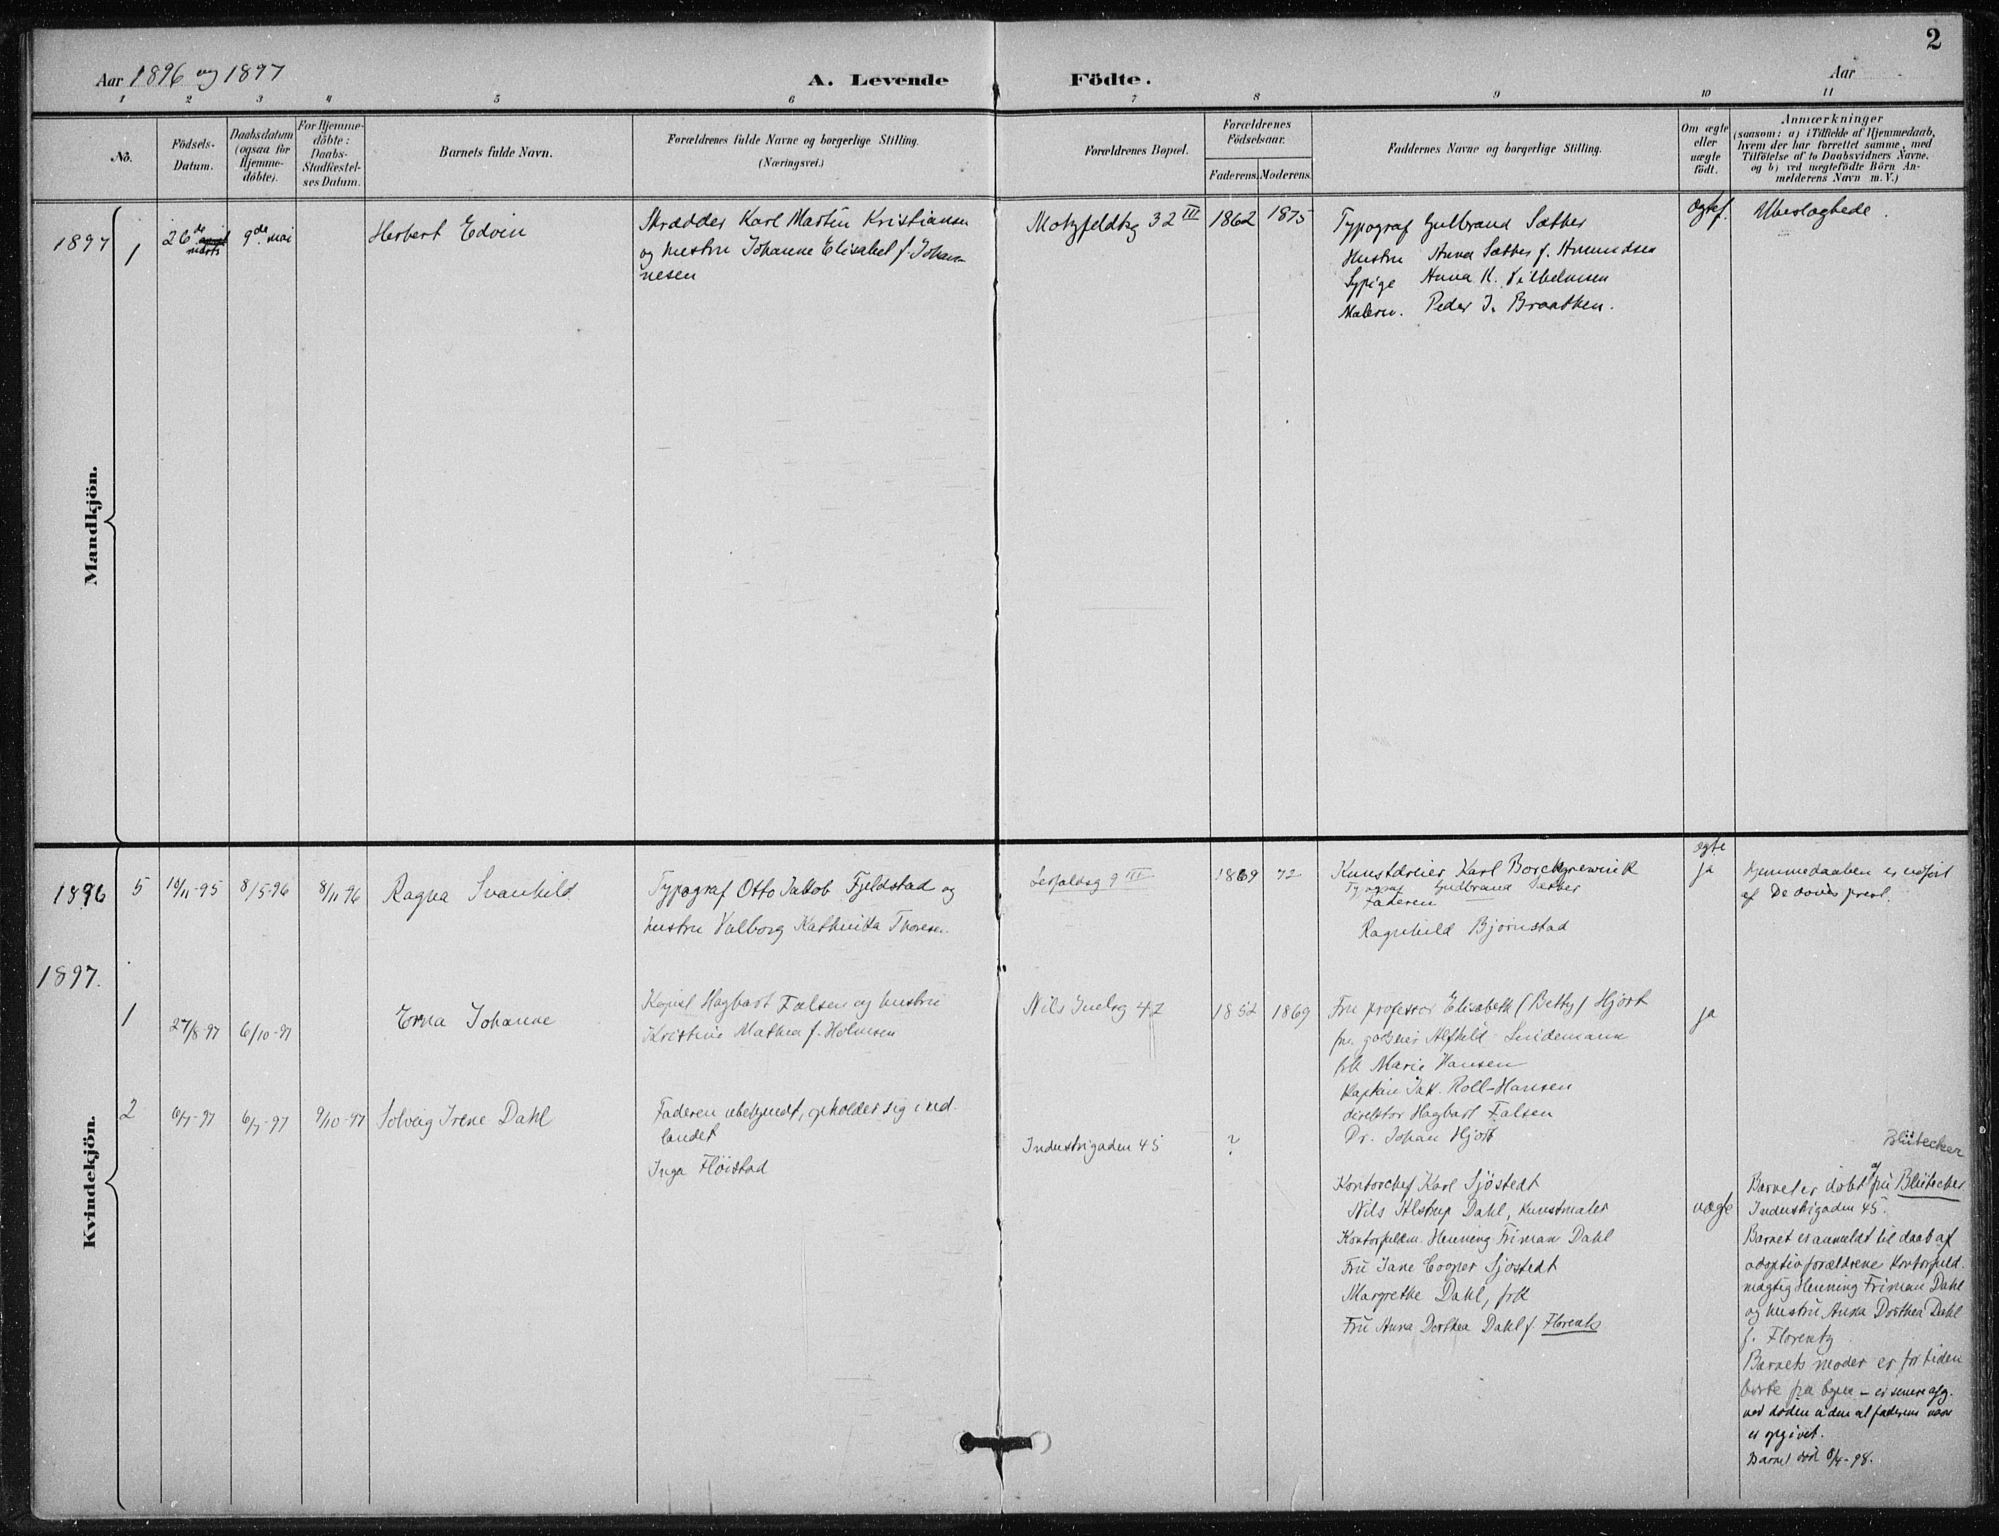 2
Aar 1896 og 1897
A. Levende Födte.
Aar
1 2 3 4 5 6 7 8 9 10 11
No.
Födsels-Datum.
Daabsdatum (ogsaa for Hjemme-döbte).
For Hjemme-döbte: Daabs-Stadfæstel-ses Datum.
Barnets fulde Navn.
Forældrenes fulde Navne og borgerlige Stilling.
(Næringsvei.)
Forældrenes Bopæl.
Forældrenes Födselsaar.
Faderens. Moderens.
Faddernes Navne og borgerlige Stilling.
Om ægte eller uægte födt.
Anmærkninger
(saasom: a) i Tilfælde af Hjemmedaab,
hvem der har forrettet samme, med
Tilföielse af to Daabsvidners Navne.
og b) ved uægtefödte Börn An-
melderens Navn m. V.)
Mandkjön.
1897 1 26de marts 9de mai
Herbert Edvin
Skrædder Karl Martin Kristiansen
og hustru Johanne Elisabet f. Johan-
nesen
Motzfeldtsg 32 III
1862 1875
Typograf Gulbrand Sæther
Hustru Anna Sæther f. Amundsen
Sypige Anna K. Vilhelmsen
Malersv. Peder J. Braathen.
ægtef.
Ubeslægtede.
Kvindekjön.
1896 5 10/11-95 8/5-96 8/11 96
Ragna Svanhild
Typograf Otto Jakob Fjeldstad og
hustru Valborg Kathinka Thoresen
9 III
1869 72
Kunstdreier Karl Borchgrevink
Typograf Gudbrand Sæther
Faderen
Ragnhild Bjørnstad
ægte
ja
Hjemmedaaben er udført
af De doves prest.
1897.
1 27/8-97 6/10-97
Erna Johanne
Hagbart Falsen og hustru
Kristine Mathea f. Holmsen
Nils Juelsg 42
1852 1869
Fru professor Elisabeth (Betty) Hjort
fru godseier Alfhild Lindemann
frk Marie Hansen
Kaptein Jak. Roll-Hansen
direktør Hagbart Falsen
Dr. Johan Hjort
ja
2 6/7-97 6/7-97 9/10-97
Solveig Irene Dahl
Faderen ubekjendt, opholder sig i ud-
landet
Inga Fløistad
Industrigaden 45
?
Kontorchef Karl Sjöstedt
Nils Alstrup Dahl, Kunstmaler
Kontorfuldm. Henning Friman Dahl
Fru Jane Cooper Sjöstedt
Margrethe Dahl, frk
Fru Anna Dorthea Dahl f. Florentz
uægte
Blütecker
Barnet er døbt af fru Blütecher
Industrigaden 45.
Barnet er anmeldt til daab af
adoptivforældrene Kontorfuld-
mægtig Henning Friman Dahl
og hustru Anna Dorthea Dahl
f. Florentz
Barnets moder er for tiden
borte fra byen – er senere afg.
ved døden uden at faderens navn
er opgivet.
Barnet død 8/4-98.